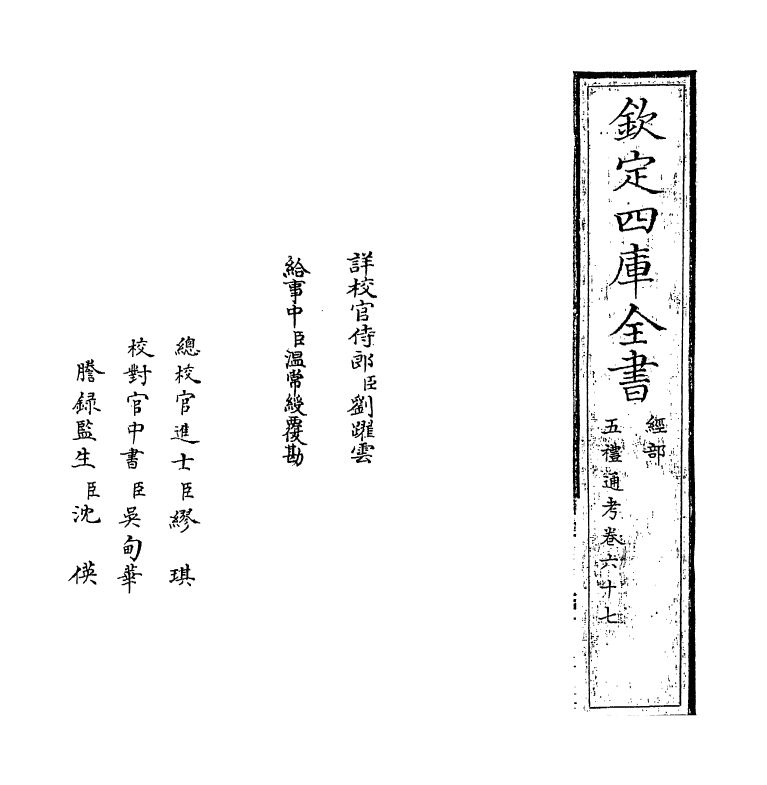 欽定四庫全書
經部
五禮通考卷六十七
詳校官侍郎臣劉躍雲
給事中臣溫常綬覆勘
總校官進士臣繆琪
校對官中書臣吳甸華
謄錄監生臣沈偀